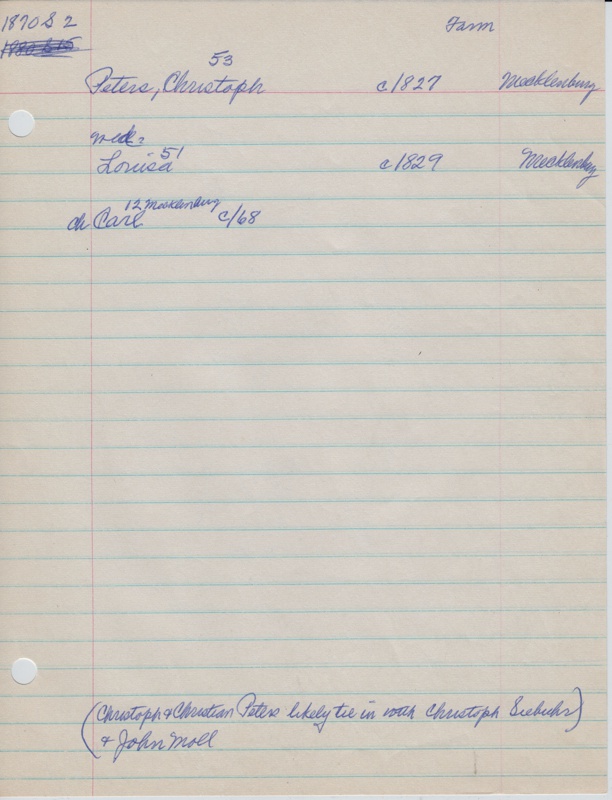 1870 S 2
Farm
1880 S 15
53
Peters, Christoph c/1827 Mecklenburg
wid:
51
Louisa c/1829 Mecklenburg
12 Mecklenburg
ch Carl c/68
(Christoph & Christian Peters likely tie in with Christoph)
& John Moll